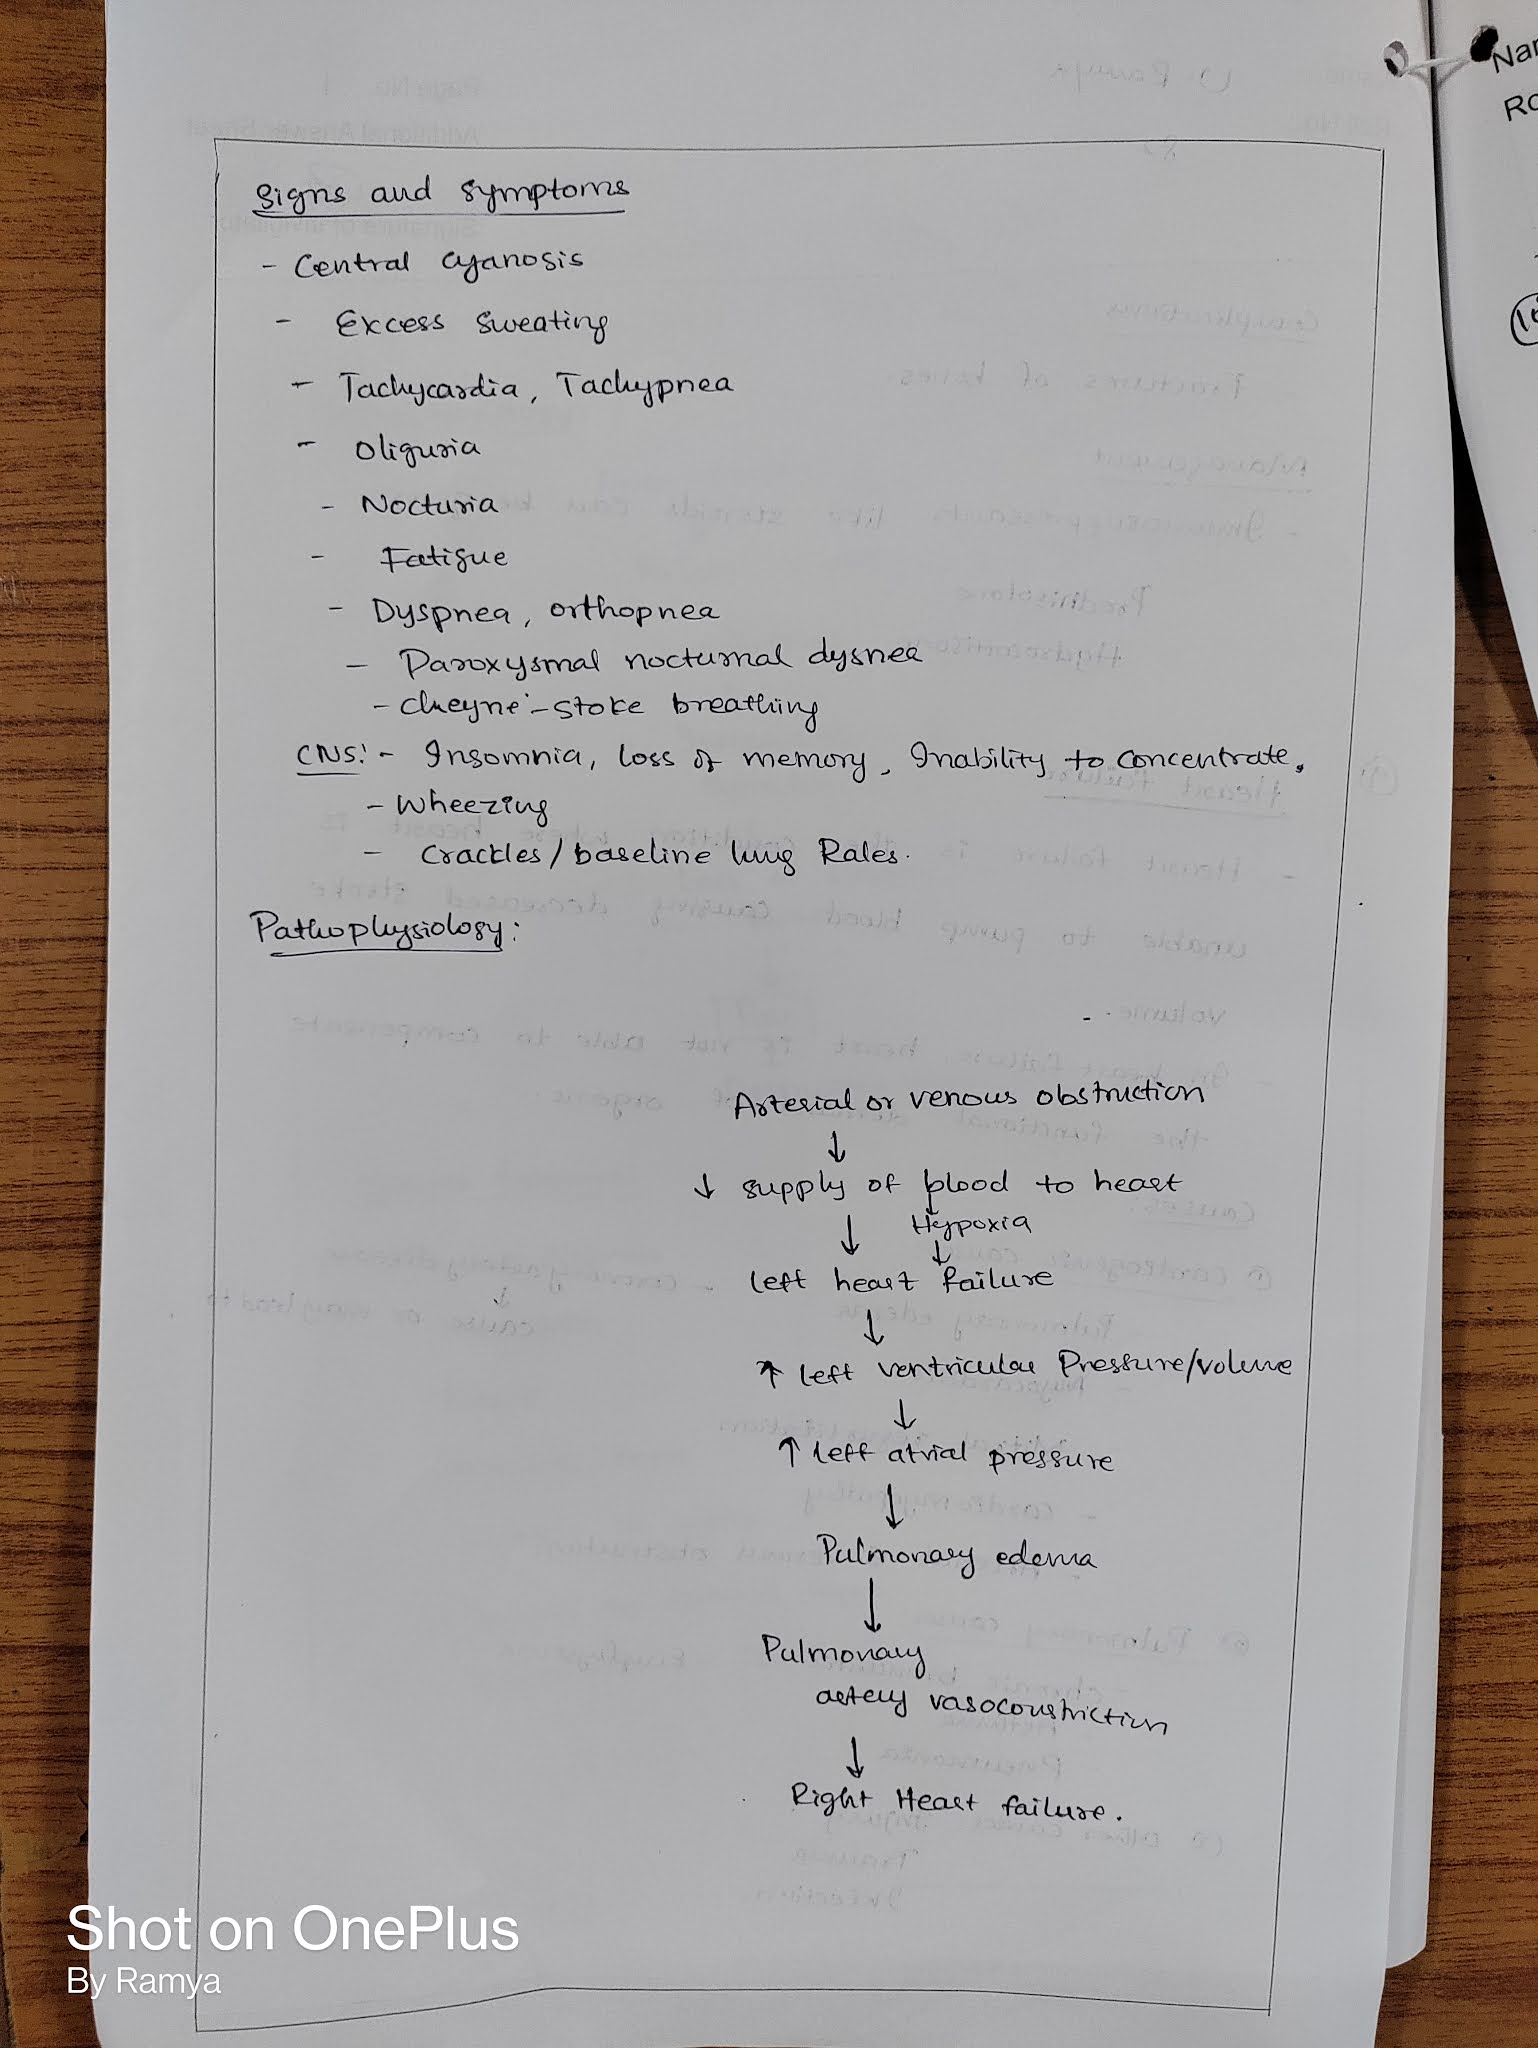 Nar
Ro
Signs and symptoms
- Central cyanosis
- Excess sweating
- Tachycardia, Tachypnea
- Oliguria
- Nocturia
- Fatigue
- Dyspnea, orthopnea
- Paroxysmal nocturnal dysnea
- cheyne-stoke breathing
CNS:- Insomnia, loss of memory, Inability to concentrate.
- Wheezing
- Crackles/baseline lung Rales.
Pathophysiology:
Arterial or venous obstruction
↓
↓ supply of blood to heart
↓ Hypoxia
↓
left heart failure
↓
↑ left ventricular Pressure/volume
↓
↑ left atrial pressure
↓
Pulmonary edema
↓
Pulmonary
artery vasoconstriction
↓
Right Heart failure.
Shot on OnePlus
By Ramya